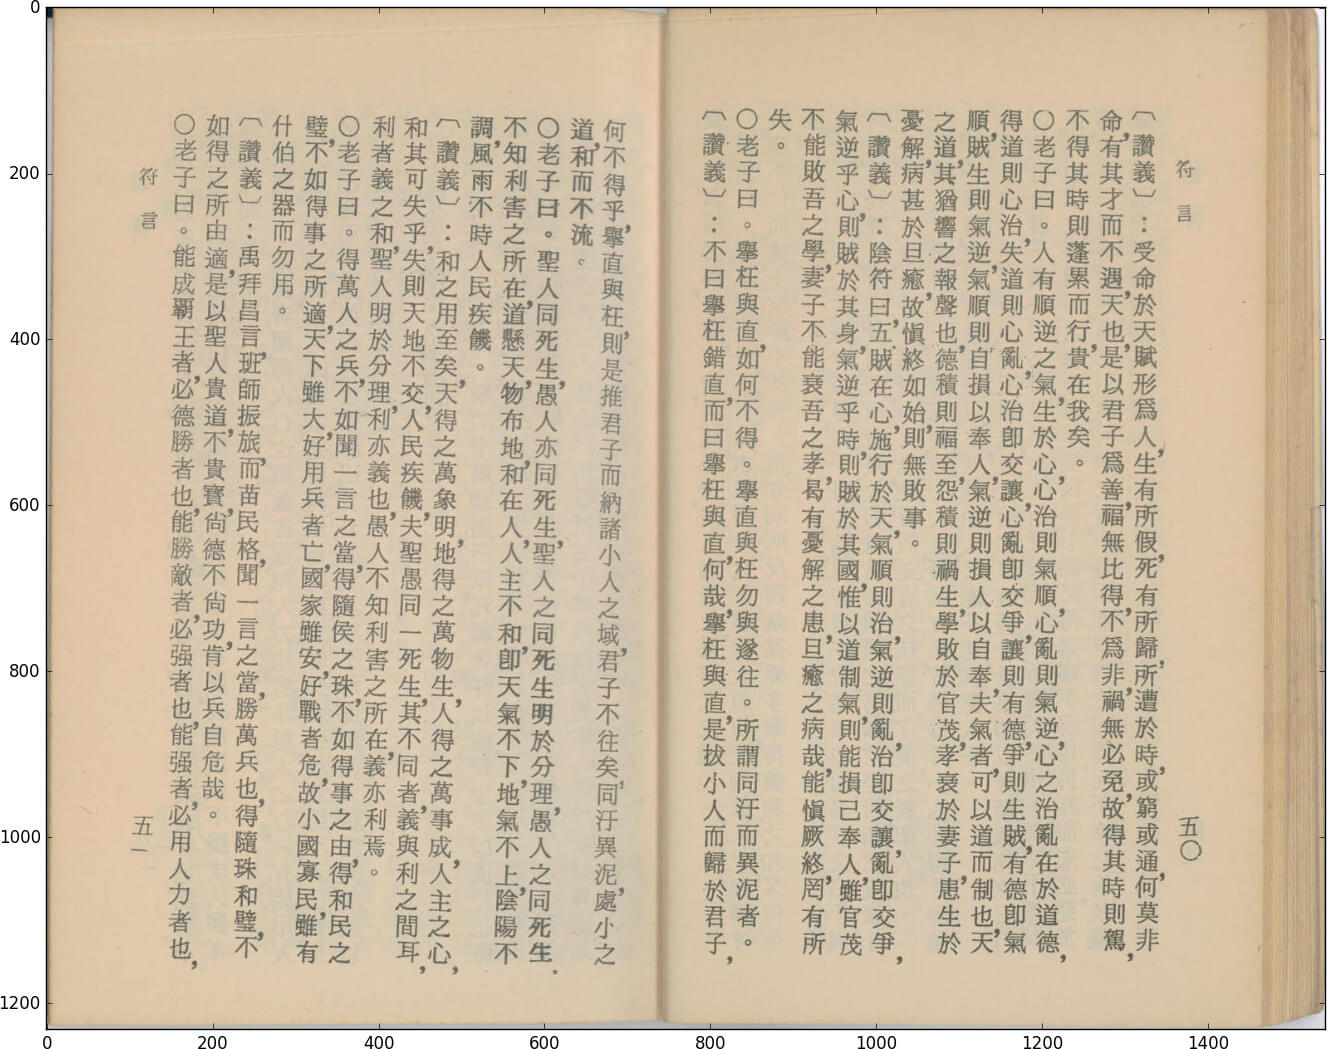 符言
〔讚義〕：受命於天，賦形爲人，生有所假，死有所歸，所遭於時，或窮或通，何莫非
命，有其才而不遇，天也，是以君子爲善，福無比得，不爲非，禍無必免，故得其時則駕，
不得其時則蓬累而行，貴在我矣。
〇老子曰。人有順逆之氣，生於心，心治則氣順，心亂則氣逆，心之治亂在於道德，
得道則心治，失道則心亂，心治卽交讓，心亂卽交爭，讓則有德，爭則生賊，有德卽氣
順，賊生則氣逆，氣順則自損以奉人，氣逆則損人以自奉，夫氣者，可以道而制也，天
之道，其猶響之報聲也，德積則福至，怨積則禍生，學敗於官茂，孝衰於妻子，患生於
憂解，病甚於且癒，故愼終如始，則無敗事。
〔讚義〕：陰符曰，五賊在心，施行於天，氣順則治，氣逆則亂，治卽交讓，亂卽交爭，
氣逆乎心，則賊於其身，氣逆乎時，則賊於其國，惟以道制氣，則能損己奉人，雖官茂
不能敗吾之學，妻子不能衰吾之孝，曷有憂解之患，且癒之病哉，能愼厥終，罔有所
失。
〇老子曰。擧枉與直，如何不得。擧直與枉，勿與遂往。所謂同汙而異泥者。
〔讚義〕：不曰擧枉錯直，而曰擧枉與直，何哉，擧枉與直，是拔小人而歸於君子，
五〇
何不得乎，擧直與枉，則是推君子而納諸小人之域，君子不往矣，同汙異泥，處小之
道，和而不流。
〇老子曰。聖人同死生，愚人亦同死生，聖人之同死生明於分理，愚人之同死生，
不知利害之所在，道懸天，物布地，和在人，人主不和，卽天氣不下，地氣不上，陰陽不
調，風雨不時，人民疾饑。
〔讚義〕：和之用至矣，天得之萬象明，地得之萬物生，人得之萬事成，人主之心，
和其可失乎，失則天地不交，人民疾饑，夫聖愚同一死生，其不同者，義與利之間耳，
利者義之和，聖人明於分理，利亦義也，愚人不知利害之所在，義亦利焉。
〇老子曰。得萬人之兵，不如聞一言之當，得隨侯之珠，不如得事之由，得和民之
璧，不如得事之所適，天下雖大，好用兵者亡，國家雖安，好戰者危，故小國寡民，雖有
什伯之器而勿用。
〔讚義〕：禹拜昌言，班師振旅，而苗民格，聞一言之當，勝萬兵也，得隨珠和璧，不
如得之所由適，是以聖人貴道，不貴寶，尙德不尙功，肯以兵自危哉。
〇老子曰。能成覇王者，必德勝者也，能勝敵者，必强者也，能强者，必用人力者也，
符言
五一